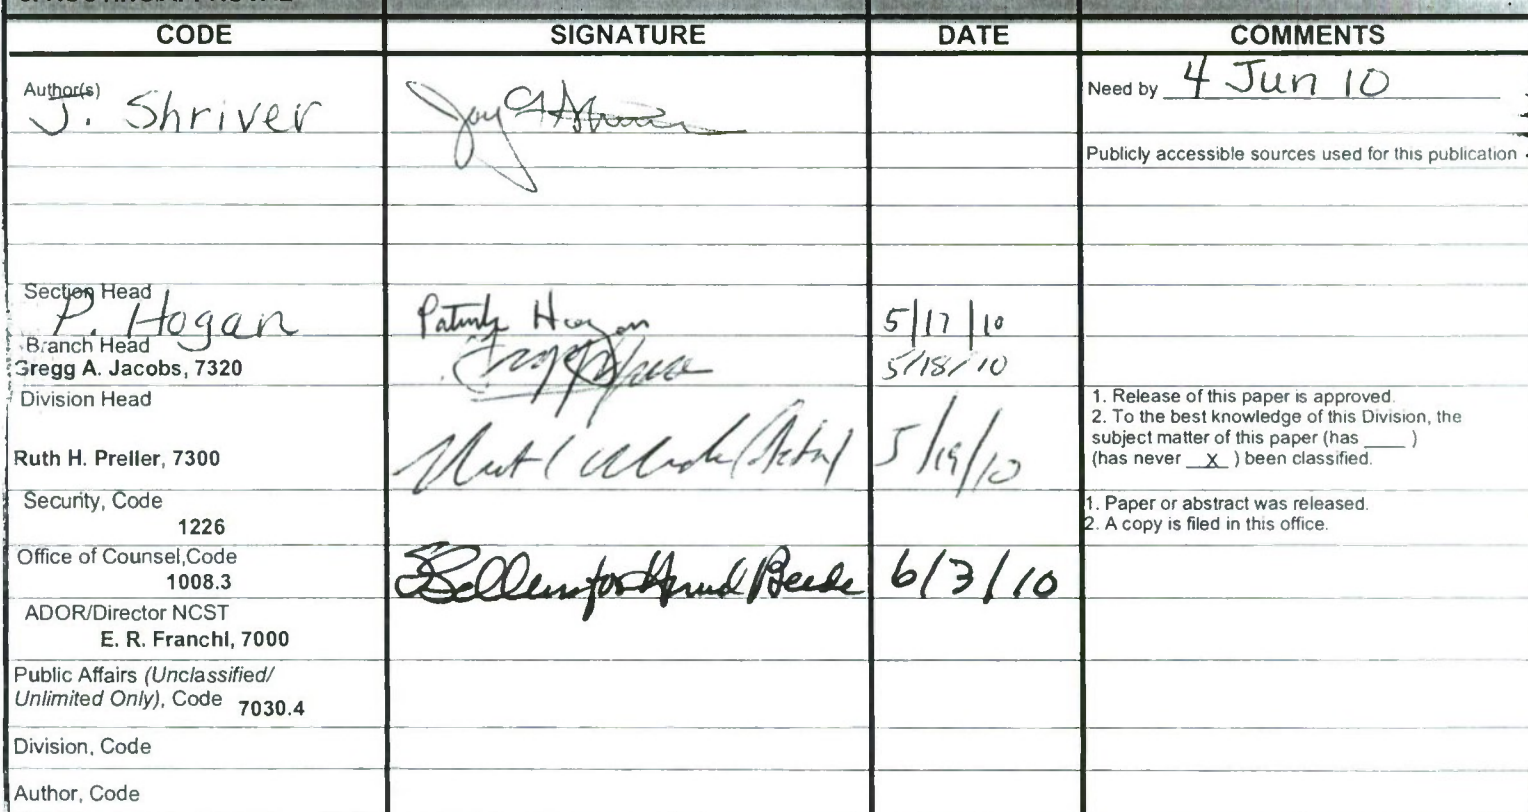 CODE SIGNATURE DATE COMMENTS
Author(s)
J. Shriver
Need by 4 Jun 10
Publicly accessible sources used for this publication
Section Head
P. Hogan Hogan 5/17/10
Branch Head
Gregg A. Jacobs, 7320 5/18/10
Division Head
Ruth H. Preller, 7300 5/19/10
1. Release of this paper is approved.
2. To the best knowledge of this Division, the
subject matter of this paper (has ____ )
(has never X ) been classified.
Security, Code
1226
1. Paper or abstract was released.
2. A copy is filed in this office.
Office of Counsel,Code
1008.3 6/3/10
ADOR/Director NCST
E. R. Franchi, 7000
Public Affairs (Unclassified/
Unlimited Only), Code 7030.4
Division, Code
Author, Code